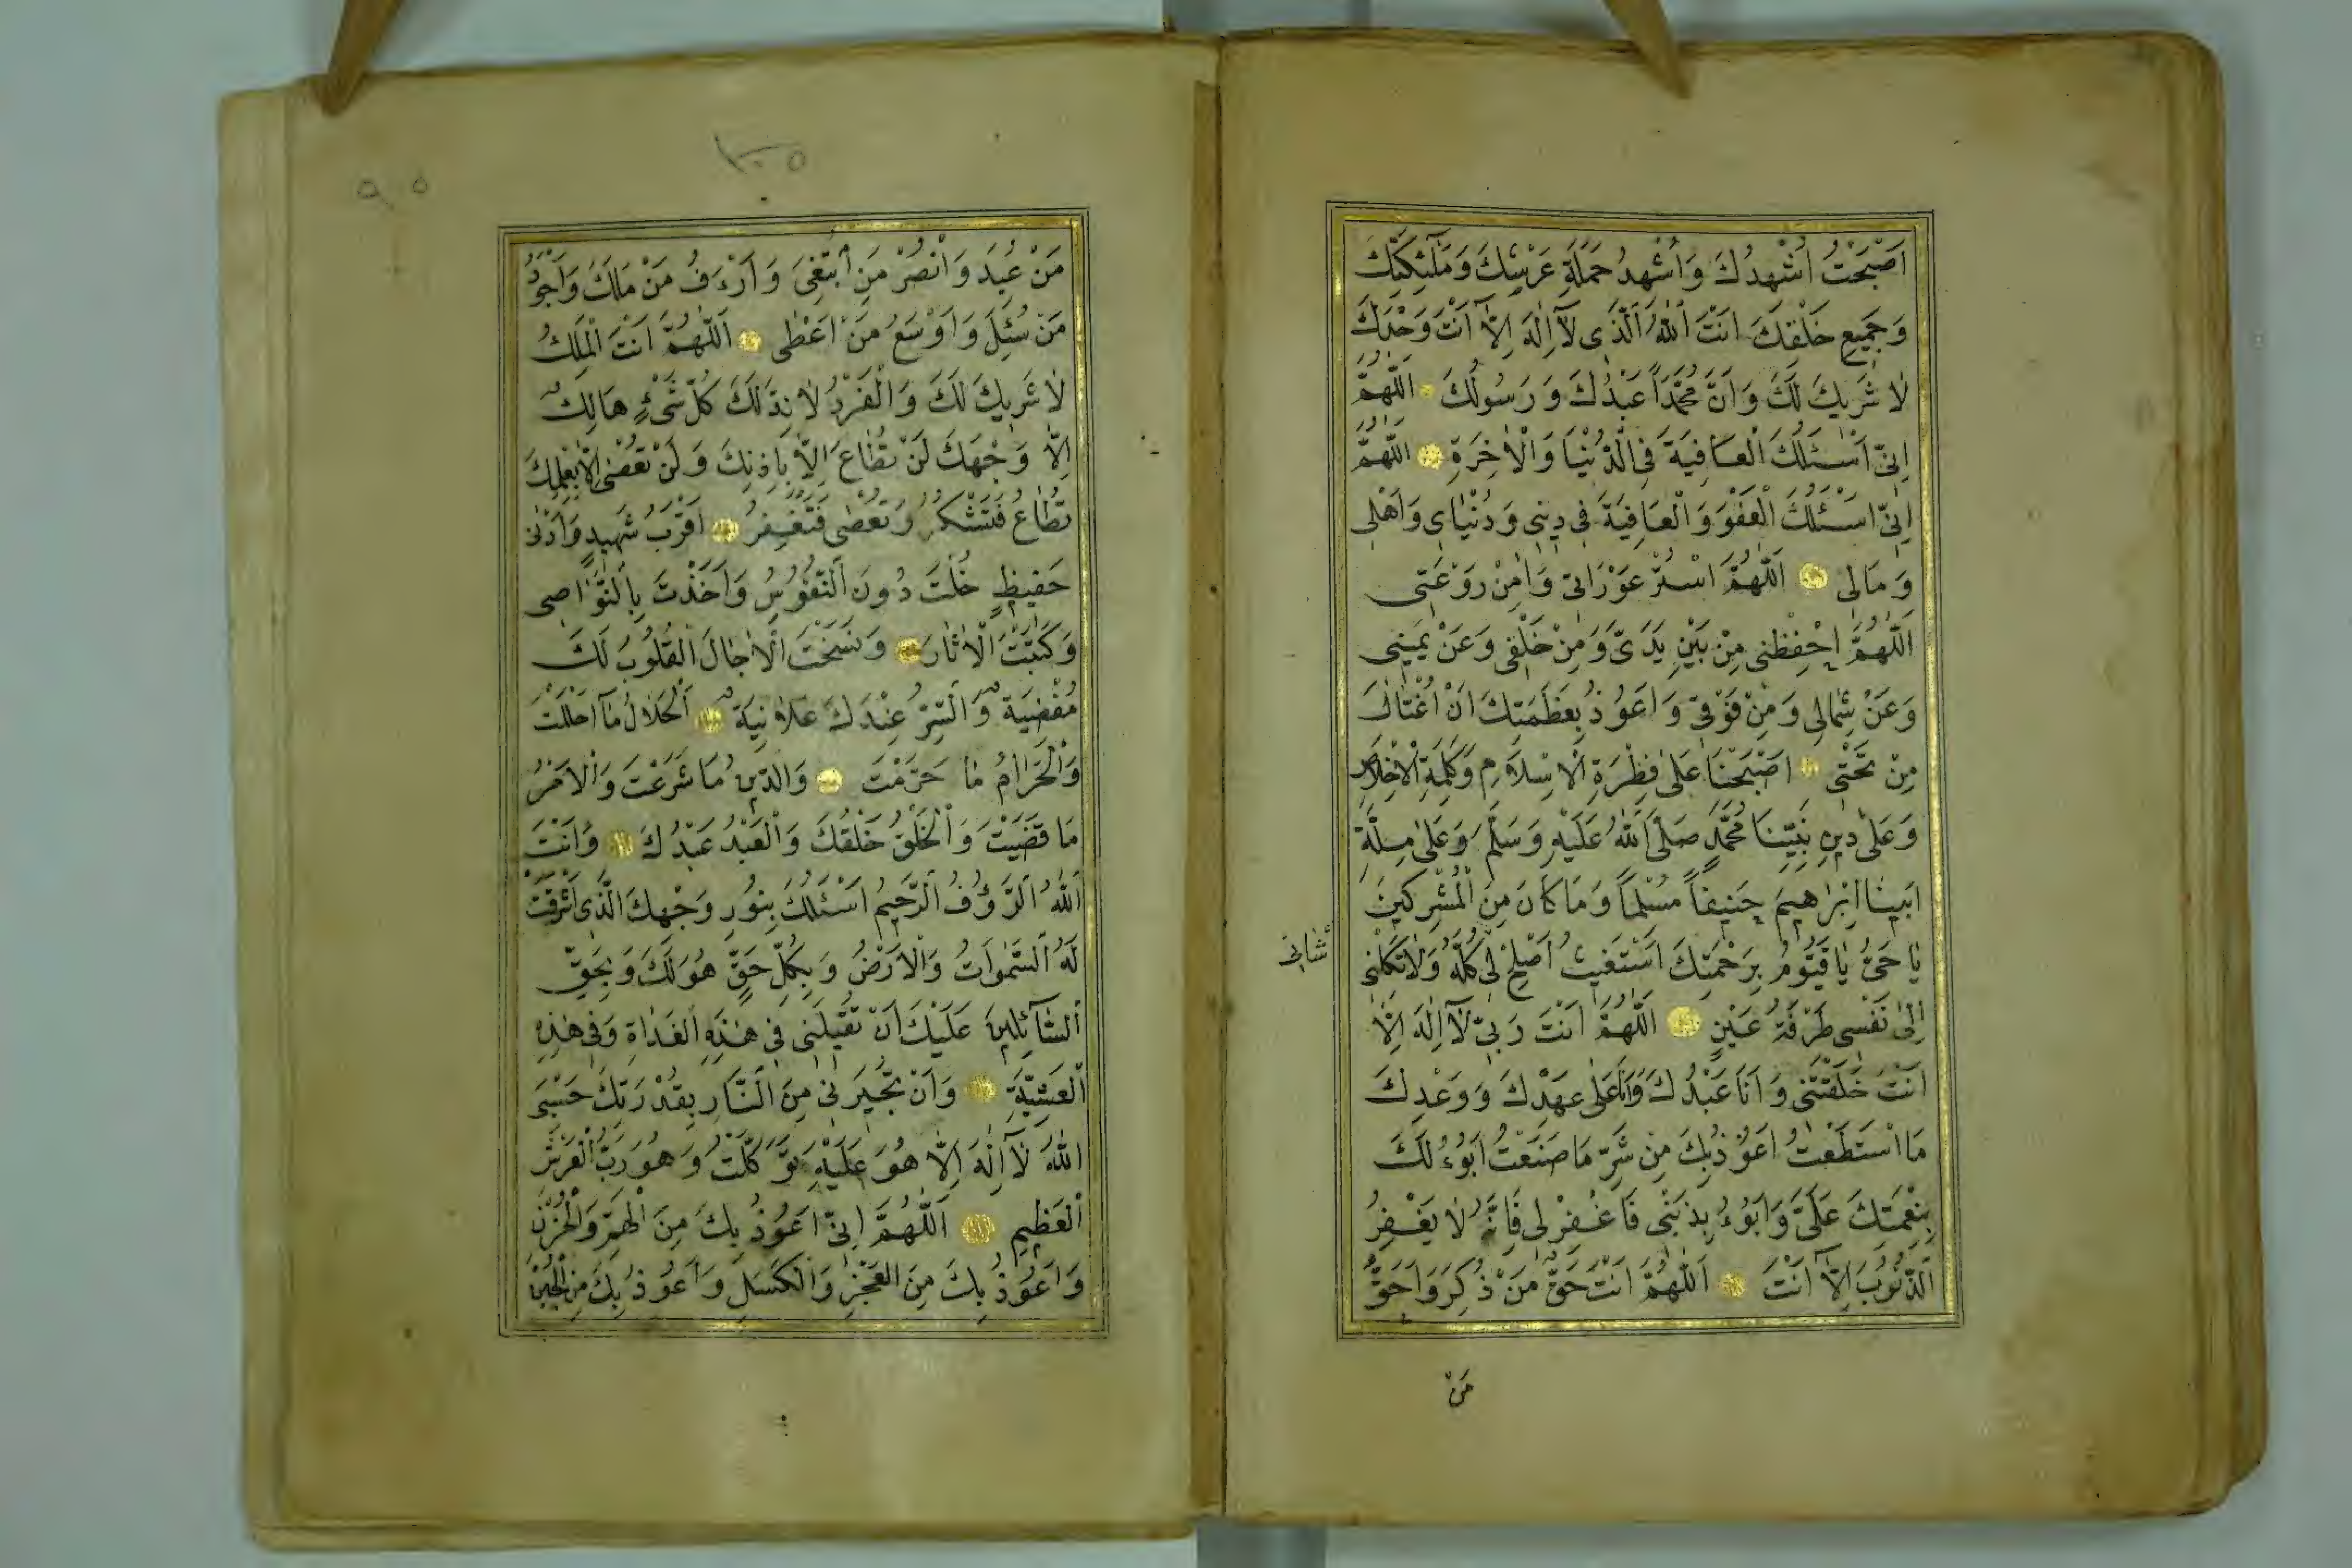 اَصْبَحْتُ اُشْهِدُكَ وَاُشْهِدُ حَمَلَةِ عَرْشِكَ وَمَلٰٓئِكَتِكَ
وَجَمِيعِ خَلْقِكَ اَنْتَ اللّٰهُ الَّذٖى لَآ اِلٰهَ اِلَّآ اَنْتَ وَحْدَكَ
لَا شَرِيكَ لَكَ وَاَنَّ مُحَمَّدًا عَبْدُكَ وَرَسُولُكَ اَللّٰهُمَّ
اِنِّى اَسْئَلُكَ الْعَافِيَةَ فِى الدُّنْيَا وَالْاٰخِرَةِ اَللّٰهُمَّ
اِنِّى اَسْئَلُكَ الْعَفْوَ وَالْعَافِيَةَ فِى دِينِى وَدُنْيَاىَ وَاَهْلِى
وَمَالِى اَللّٰهُمَّ اسْتُرْ عَوْرَاتِى وَاٰمِنْ رَوْعَتِى
اَللّٰهُمَّ احْفِظْنِى مِنْ بَيْنِ يَدَىَّ وَمِنْ خَلْفِى وَعَنْ يَمِينِى
وَعَنْ شِمَالِى وَمِنْ فَوْقِى وَاَعُوذُ بِعَظَمَتِكَ اَنْ اُغْتَالَ
مِنْ تَحْتِى اَصْبَحْنَا عَلٰى فِطْرَةِ الْاِسْلَامِ وَكَلِمَةِ الْاِخْلَاصِ
وَعَلٰى دِينِ نَبِيِّنَا مُحَمَّدٍ صَلَّى اللّٰهُ عَلَيْهِ وَسَلَّمَ وَعَلٰى مِلَّةِ
اَبِينَا اِبْرٰهِيمَ حَنِيفًا مُسْلِمًا وَمَا كَانَ مِنَ الْمُشْرِكِينَ
يَا حَىُّ يَا قَيُّومُ بِرَحْمَتِكَ اَسْتَغِيثُ اَصْلِحْ لِى كُلَّهُ وَلَا تَكِلْنِى
شَانِى
اِلٰى نَفْسِى طَرْفَةَ عَيْنٍ اَللّٰهُمَّ اَنْتَ رَبِّى لَآ اِلٰهَ اِلَّا
اَنْتَ خَلَقْتَنِى وَاَنَا عَبْدُكَ وَاَنَا عَلٰى عَهْدِكَ وَوَعْدِكَ
مَا اسْتَطَعْتُ اَعُوذُ بِكَ مِنْ شَرِّ مَا صَنَعْتُ اَبُوءُ لَكَ
بِنِعْمَتِكَ عَلَىَّ وَاَبُوءُ بِذَنْبِى فَاغْفِرْ لِى فَاِنَّهُ لَا يَغْفِرُ
الذُّنُوبَ اِلَّآ اَنْتَ اَللّٰهُمَّ اَنْتَ حَقُّ مَنْ ذُكِرَ وَاَحَقُّ
مَنْ
١٠٥
٩٠٥
مَنْ عُبِدَ وَانْصُرْ مَنِ ابْتُغِىَ وَاَرْءَفُ مَنْ مَلَكَ وَاَجْوَدُ
مَنْ سُئِلَ وَاَوْسَعُ مَنْ اَعْطٰى اَللّٰهُمَّ اَنْتَ الْمَلِكُ
لَا شَرِيكَ لَكَ وَالْفَرْدُ لَا نِدَّ لَكَ كُلُّ شَىْءٍ هَالِكٌ
اِلَّا وَجْهَكَ لَنْ تُطَاعَ اِلَّا بِاِذْنِكَ وَلَنْ تُعْصٰى اِلَّا بِعِلْمِكَ
تُطَاعُ فَتَشْكُرُ وَتُعْصٰى فَتَغْفِرُ اَقْرَبُ شَهِيدٍ وَاَدْنٰى
حَفِيظٍ حُلْتَ دُونَ النُّفُوسُ وَاَخَذْتَ بِالنَّوَاصِى
وَكَتَبْتَ الْاٰثَارَ وَنَسَخْتَ الْاٰجَالَ الْقُلُوبُ لَكَ
مُفْضِيَةٌ وَالسِّرُّ عِنْدَكَ عَلَانِيَةٌ اَلْحَلَالُ مَآ اَحْلَلْتَ
وَالْحَرَامُ مَا حَرَّمْتَ وَالدِّينُ مَا شَرَعْتَ وَالْاَمْرُ
مَا قَضَيْتَ وَالْخَلْقُ خَلْقُكَ وَالْعَبْدُ عَبْدُكَ وَاَنْتَ
اللّٰهُ الرَّؤُفُ الرَّحِيمُ اَسْئَلُكَ بِنُورِ وَجْهِكَ الَّذِى اَشْرَقَتْ
لَهُ السَّمٰوَاتُ وَالْاَرْضُ وَبِكُلِّ حَقٍّ هُوَ لَكَ وَبِحَقِّ
السَّآئِلِينَ عَلَيْكَ اَنْ تُقِيلَنِى فِى هٰذِهِ الْغَدَاةِ وَفِى هٰذِهِ
الْعَشِيَّةِ وَاَنْ تُجِيرَنِى مِنَ النَّارِ بِقُدْرَتِكَ حَسْبِىَ
اللّٰهُ لَآ اِلٰهَ اِلَّا هُوَ عَلَيْهِ تَوَكَّلْتُ وَهُوَ رَبُّ الْعَرْشِ
الْعَظِيمِ اَللّٰهُمَّ اِنِّى اَعُوذُ بِكَ مِنَ الْهَمِّ وَالْحُزْنِ
وَاَعُوذُ بِكَ مِنَ الْعَجْزِ وَالْكَسَلِ وَاَعُوذُ بِكَ مِنَ الْجُبْنِ